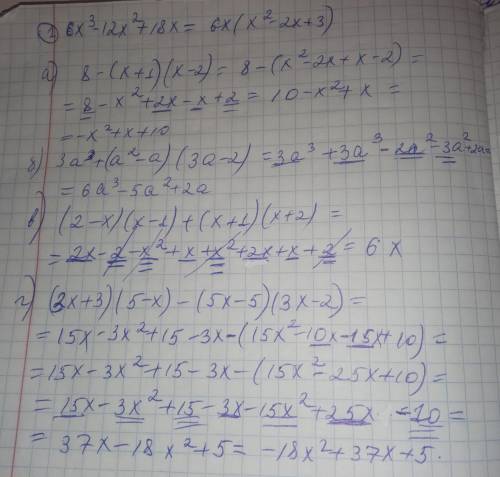 1 6x³-12x²+18x = 6x(x²-2x+3)
а) 8-(x+1)(x-2) = 8-(x²-2x+x-2) =
= 8-x²+2x-x+2 = 10-x²+x =
= -x²+x+10
б) 3a³+(a²-a)(3a-2) = 3a³+3a³-2a²-3a²+2a=
= 6a³-5a²+2a
в) (2-x)(x-1)+(x+1)(x+2) =
= 2x-2-x²+x+x²+2x+x+2 = 6x
г) (3x+3)(5-x)-(5x-5)(3x-2) =
= 15x-3x²+15-3x-(15x²-10x-15x+10) =
= 15x-3x²+15-3x-(15x²-25x+10) =
= 15x-3x²+15-3x-15x²+25x-10 =
= 37x-18x²+5 = -18x²+37x+5.